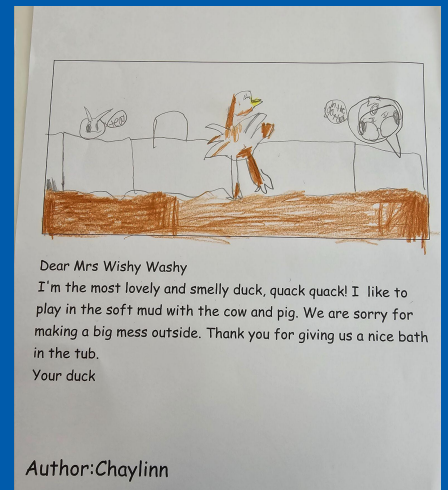 Dear Mrs Wishy Washy
I'm the most lovely and smelly duck, quack quack! I like to
play in the soft mud with the cow and pig. We are sorry for
making a big mess outside. Thank you for giving us a nice bath
in the tub.
Your duck
Author:Chaylinn